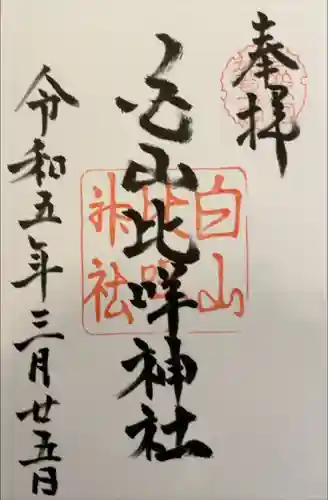 奉拝
白山比咩神社
令和五年三月廿五日
白山
比咩
神社